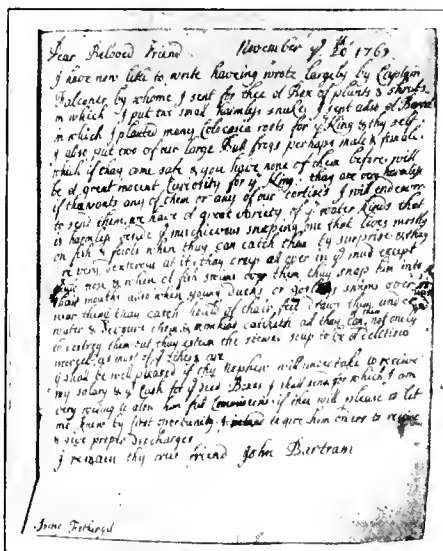 Dear Beloved Friend November yᵉ 20th 1769
I have now like to write haveing wrote largely by Captain
Falconer by whome I sent for thee a Box of plants & shrubs
in which I put two small harmless snakes I sent also a Barrel
in which I planted many Colocasia roots for yᵉ King & thy self
I also put two of our large Bull frogs perhaps male & female
which if thay come safe & you have none of them before will
be a great curiosity for yᵉ King thay are very harmless
if thee wants any of them or any of our tortises I will endevour
to send them, we have a great variety of yᵉ water kinds that
is harmless beside yᵉ mischievous snaping one that lives mostly
on fish & fowls when thay can catch them by surprise & thay
are very dexterous at it thay creep all over in yᵉ mud except
their nose & when a fish swims over them thay snap him into
their mouths also when young Ducks or goslings swims over or
near them thay catch hould of thair feet draws them under
water & devoure them & mankind catcheth all thay can not only
to destroy them but thay esteem the stewed soup to be a
as most of yᵉ others are
I shall be well pleased if thy Nephew will undertake to receive
my salary & yᵉ Cash for yᵉ seed Boxes I shall send for which I am
very willing to alow him full Comissions if thee will please to let
me know by first opertunity to give him orders to receive
& give proper discharges
I remain thy true friend John Bartram